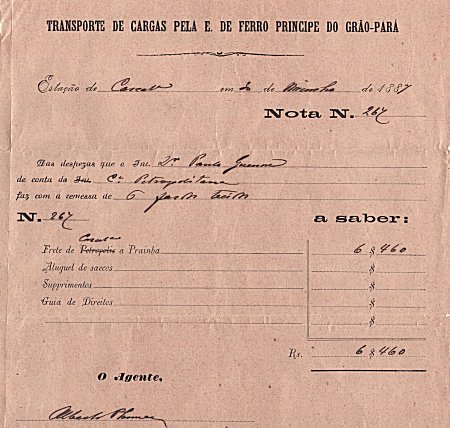 TRANSPORTE DE CARGAS PELA E. DE FERRO PRINCIPE DO GRÃO-PARÁ
Estação de Cascata em de 1887
Nota N. 267
Das despezas que o Snr. Dr. Paulo
de conta do Snr. Cª Petropolitana
faz com a remessa de 6
N. 267 a saber:
Cascata
Frete de Petropolis a Prainha 6 $ 460
Aluguel de saccos $
Supprimentos $
Guia de Direitos $
$
Rs. 6 $ 460
O Agente,
Alberto